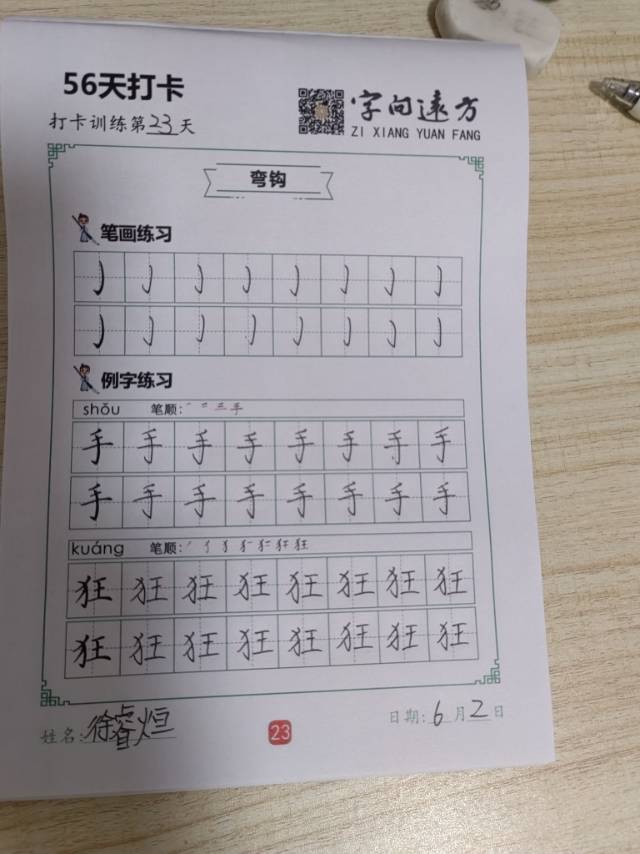 56天打卡
打卡训练第23天
字向远方
ZI XIANG YUAN FANG
弯钩
笔画练习
例字练习
shǒu 笔顺:一 二 三 手
手 手 手 手 手 手 手 手
手 手 手 手 手 手 手 手
kuáng 笔顺:
狂 狂 狂 狂 狂 狂 狂 狂
狂 狂 狂 狂 狂 狂 狂 狂
姓名:徐睿烜
23
日期:6月2日